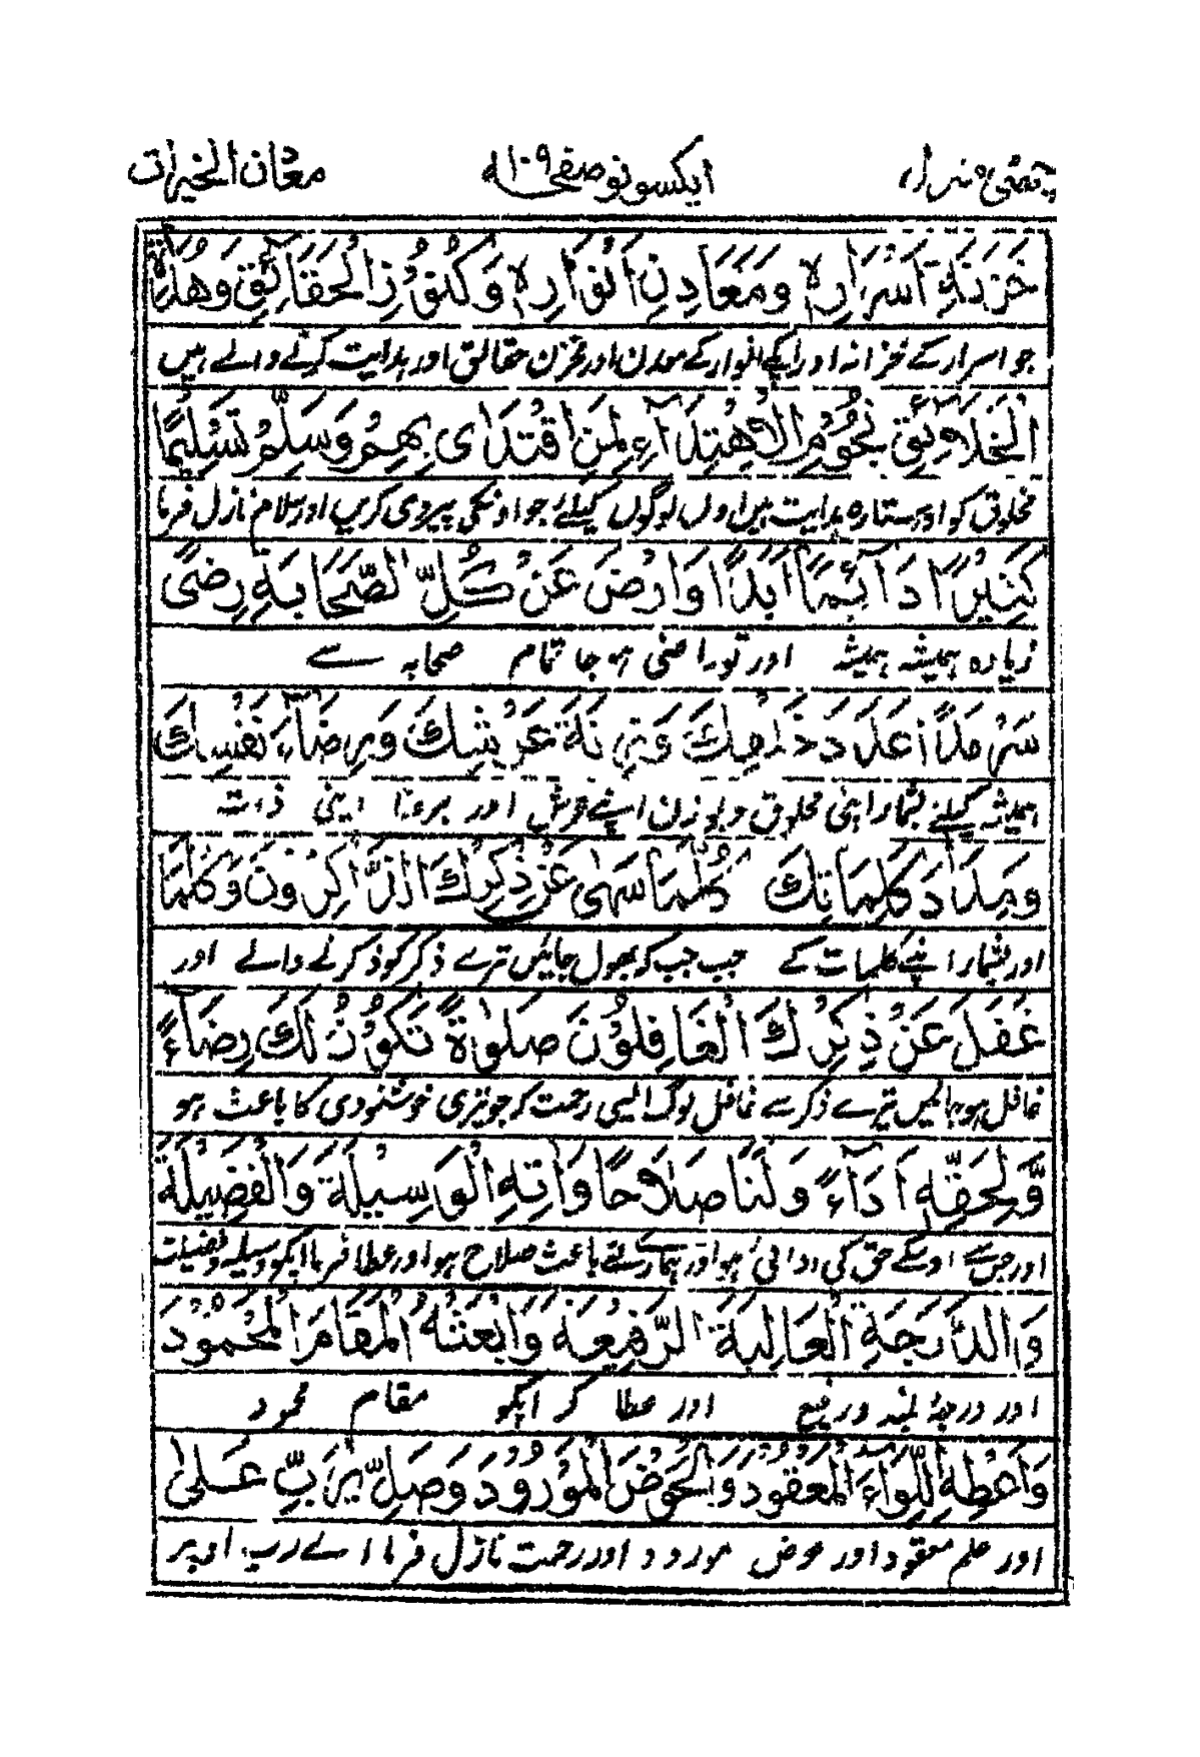 معان الخیرات ایکسو نو صفحہ ۱۰۹ منزل
خَزَنَةِ اَسْرَارِهٖ وَمَعَادِنِ اَنْوَارِهٖ وَكُنُوْزِ الْحَقَآئِقِ وَهُدَاةِ
جو اسرار کے خزانہ اور انوار کے معدن اور مخزن حقائق اور ہدایت کرنے والے ہیں
الْخَلَآئِقِ نُجُوْمِ الْاِهْتِدَآءِ لِمَنِ اقْتَدٰى بِهِمْ وَسَلِّمْ تَسْلِيْمًا
مخلوق کو اور ستارہ ہدایت ہیں اون لوگوں کیلئے جو اونکی پیروی کریں اور سلام نازل فرما
كَثِيْرًا دَآئِمًا اَبَدًا وَارْضَ عَنْ كُلِّ الصَّحَابَةِ رِضًى
زیادہ ہمیشہ ہمیشہ اور تو راضی ہو جا تمام صحابہ سے
سَرْمَدًا عَدَدَ خَلْقِكَ وَزِنَةَ عَرْشِكَ وَرِضَآءَ نَفْسِكَ
ہمیشہ کیلئے بشمار اپنی مخلوق و بوزن اپنے عرش اور برضا اپنی ذات
وَمِدَادَ كَلِمَاتِكَ كُلَّمَا سَهٰى عَنْ ذِكْرِكَ الذَّاكِرُوْنَ وَكُلَّمَا
اور بشمار اپنے کلمات کے جب جب کو بھول جائیں ترے ذکر کو ذکر کرنے والے اور
غَفَلَ عَنْ ذِكْرِكَ الْغَافِلُوْنَ صَلٰوةً تَكُوْنُ لَكَ رِضَآءً
غافل ہو جائیں تیرے ذکر سے غافل لوگ ایسی رحمت کر جو تیری خوشنودی کا باعث ہو
وَّلِحَقِّهٖ اَدَآءً وَلَنَا صَلَاحًا وَاٰتِهِ الْوَسِيْلَةَ وَالْفَضِيْلَةَ
اور جس سے اوسکے حق کی ادائی ہو اور ہمارے لئے باعث صلاح ہو اور عطا فرما اپکو وسیلہ و فضیلت
وَالدَّرَجَةَ الْعَالِيَةَ الرَّفِيْعَةَ وَابْعَثْهُ الْمَقَامَ الْمَحْمُوْدَ
اور درجۂ بلند و رفیع اور عطا کر اپکو مقام محمود
وَاَعْطِهِ اللِّوَآءَ الْمَعْقُوْدَ وَالْحَوْضَ الْمَوْرُوْدَ وَصَلِّ يَا رَبِّ عَلٰى
اور علم معقود اور حوض مورود اور رحمت نازل فرما اے رب اوپر